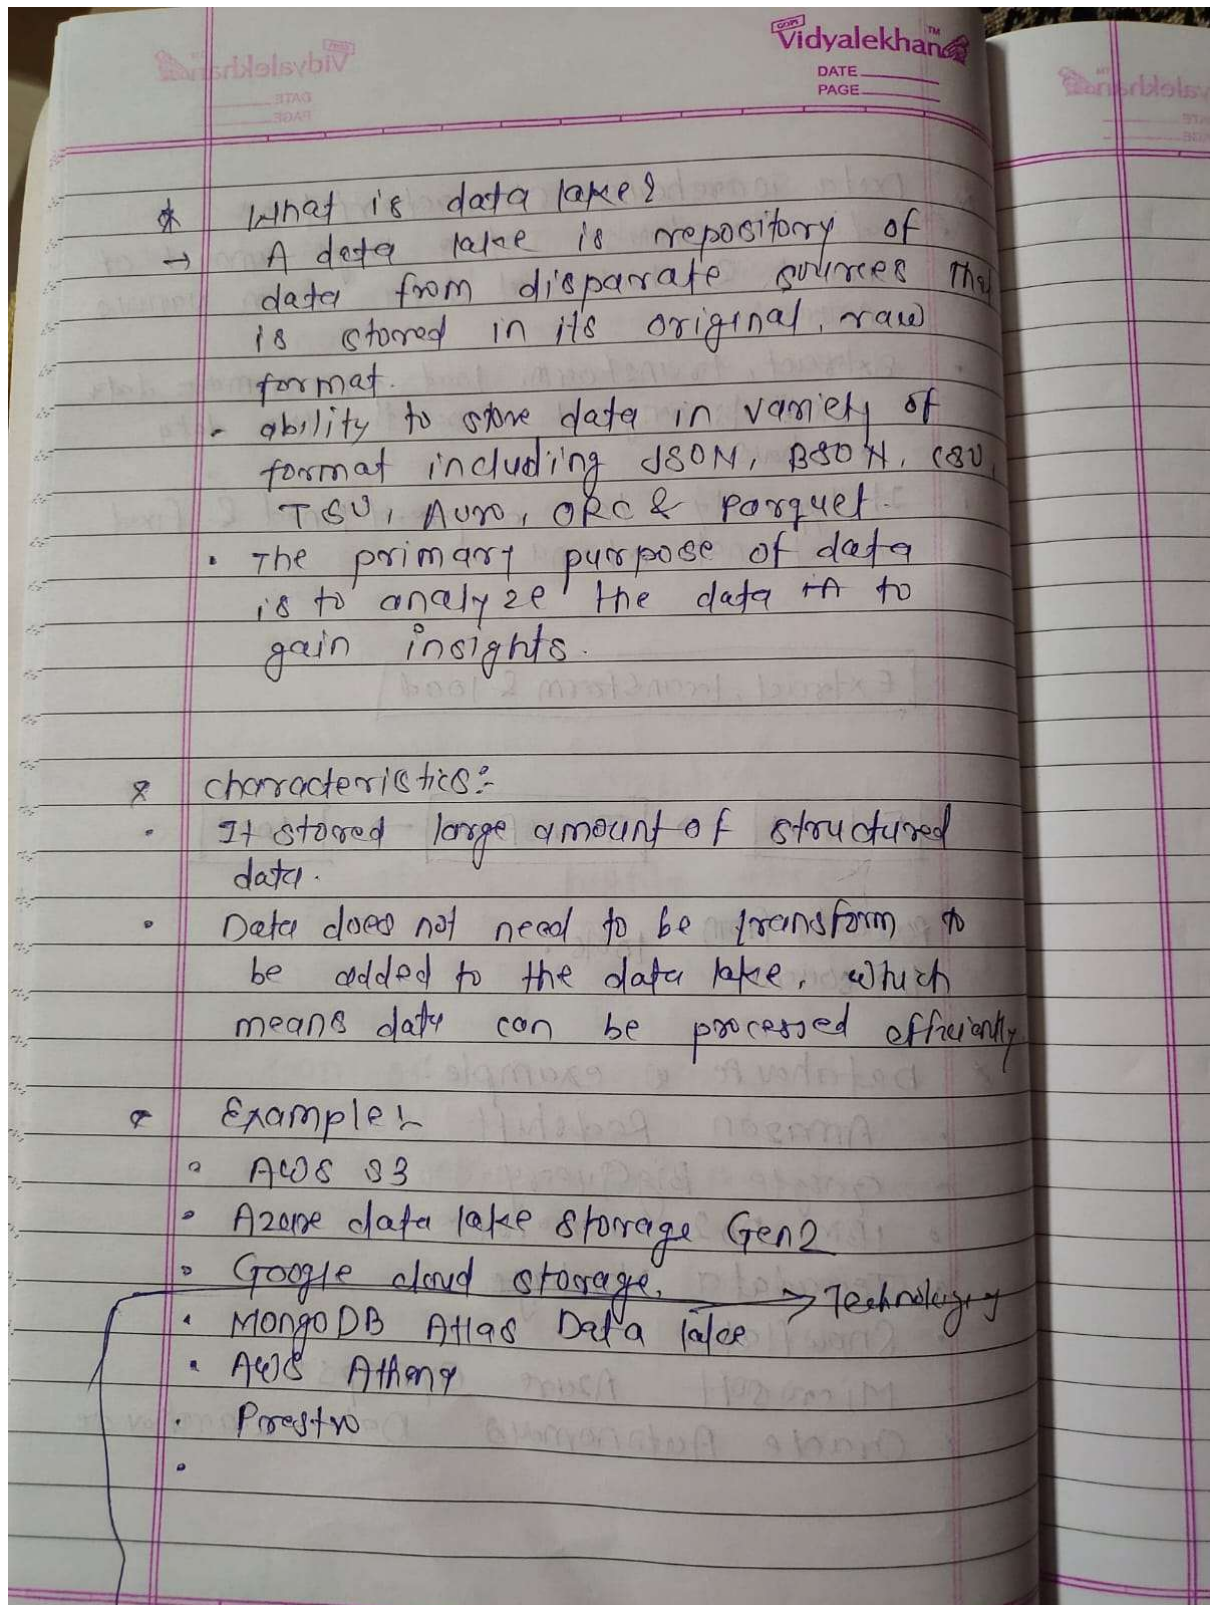 Vidyalekhan
DATE
PAGE
* What is data lake?
→ A data lake is repository of
data from disparate sources that
is stored in its original, raw
format.
• ability to store data in variety of
format including JSON, BSON, CSV,
TSV, Avro, ORC & Parquet.
• The primary purpose of data
is to analyze the data to
gain insights.
* characteristics:-
• It stored large amount of structured
data.
• Data does not need to be transform to
be added to the data lake, which
means data can be processed efficiently
* Example:-
• AWS S3
• Azure data lake storage Gen2
• Google cloud storage.
→ Technology
• MongoDB Atlas Data lake
• AWS Athena
• Prestro